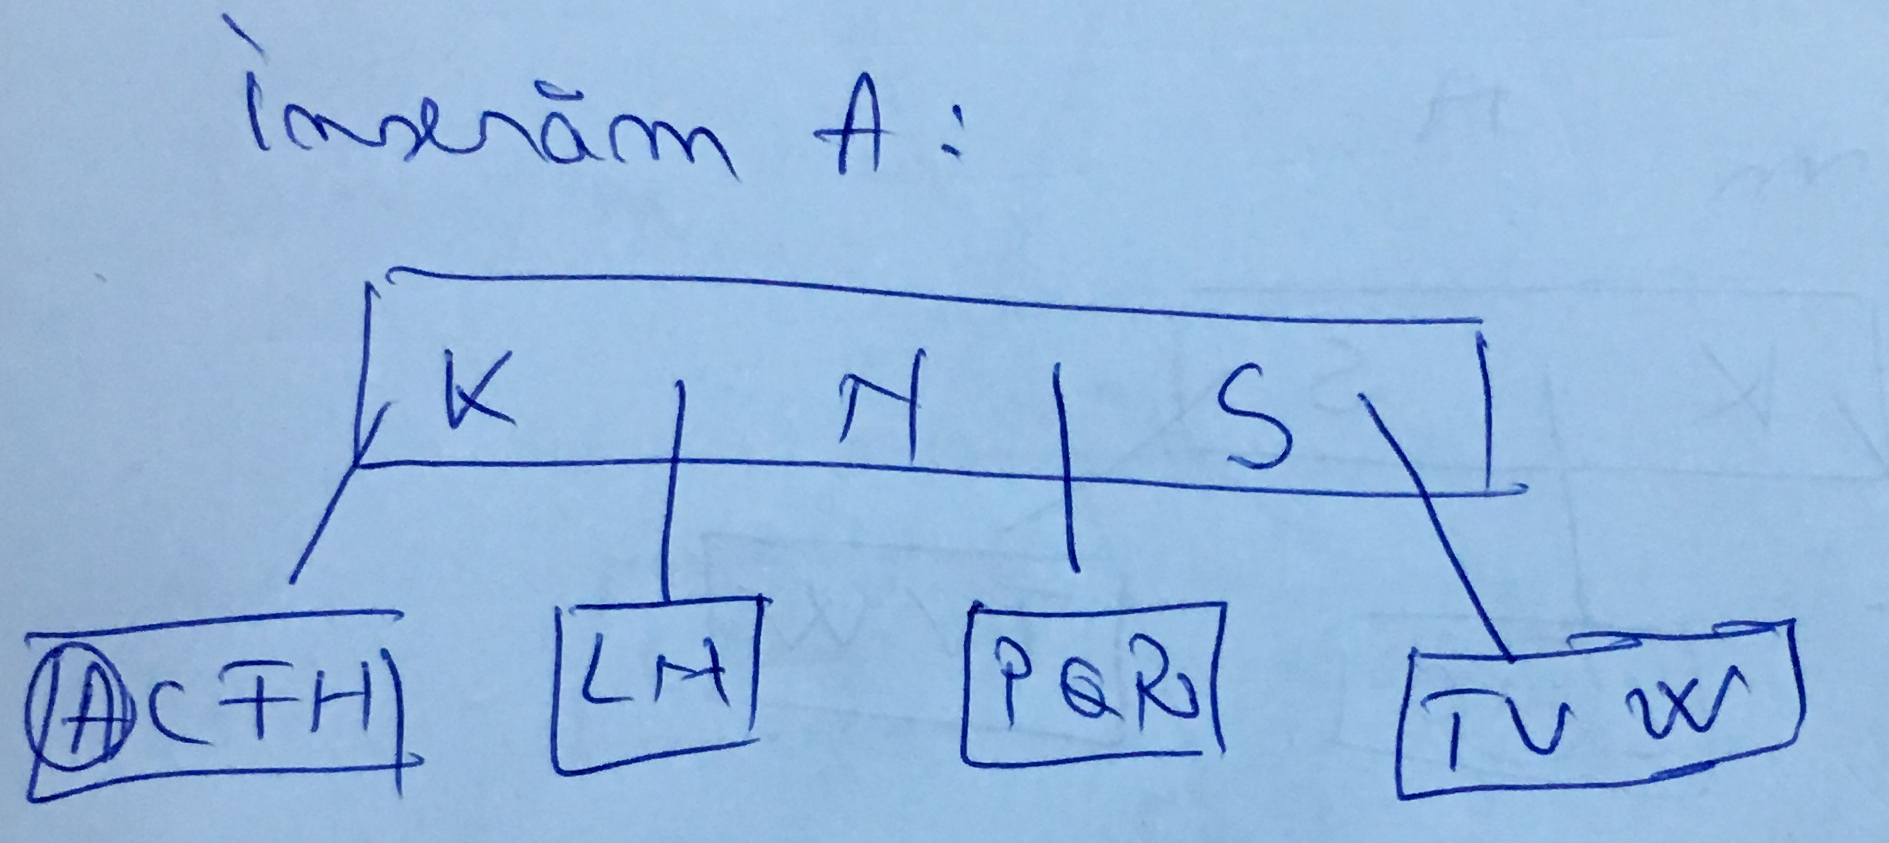 Înserăm A:
K N S
A C F H L M P Q R T V W